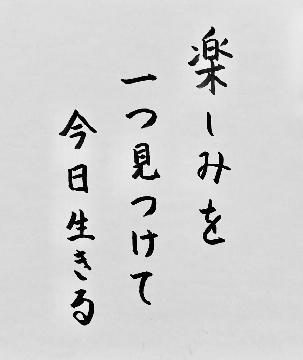 楽しみを
一つ見つけて
今日生きる